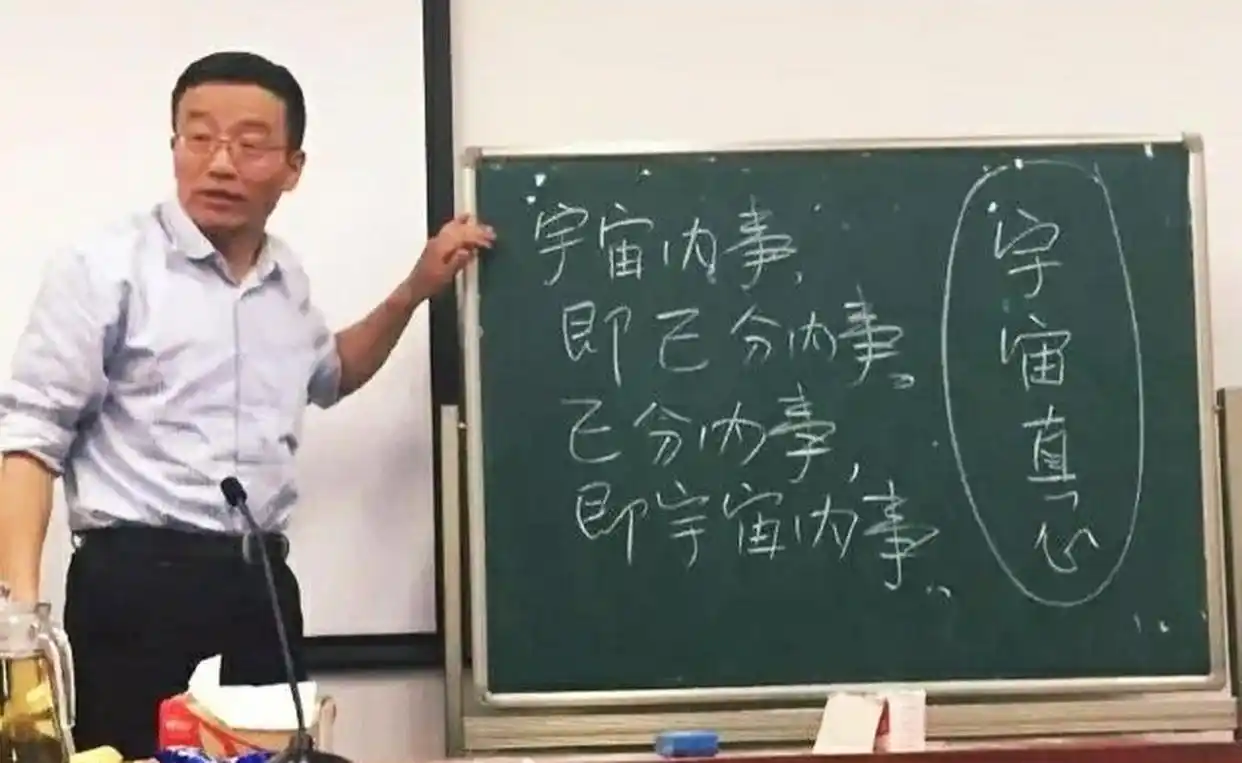 宇宙内事,
即己分内事。
己分内事,
即宇宙内事。
宇宙真心